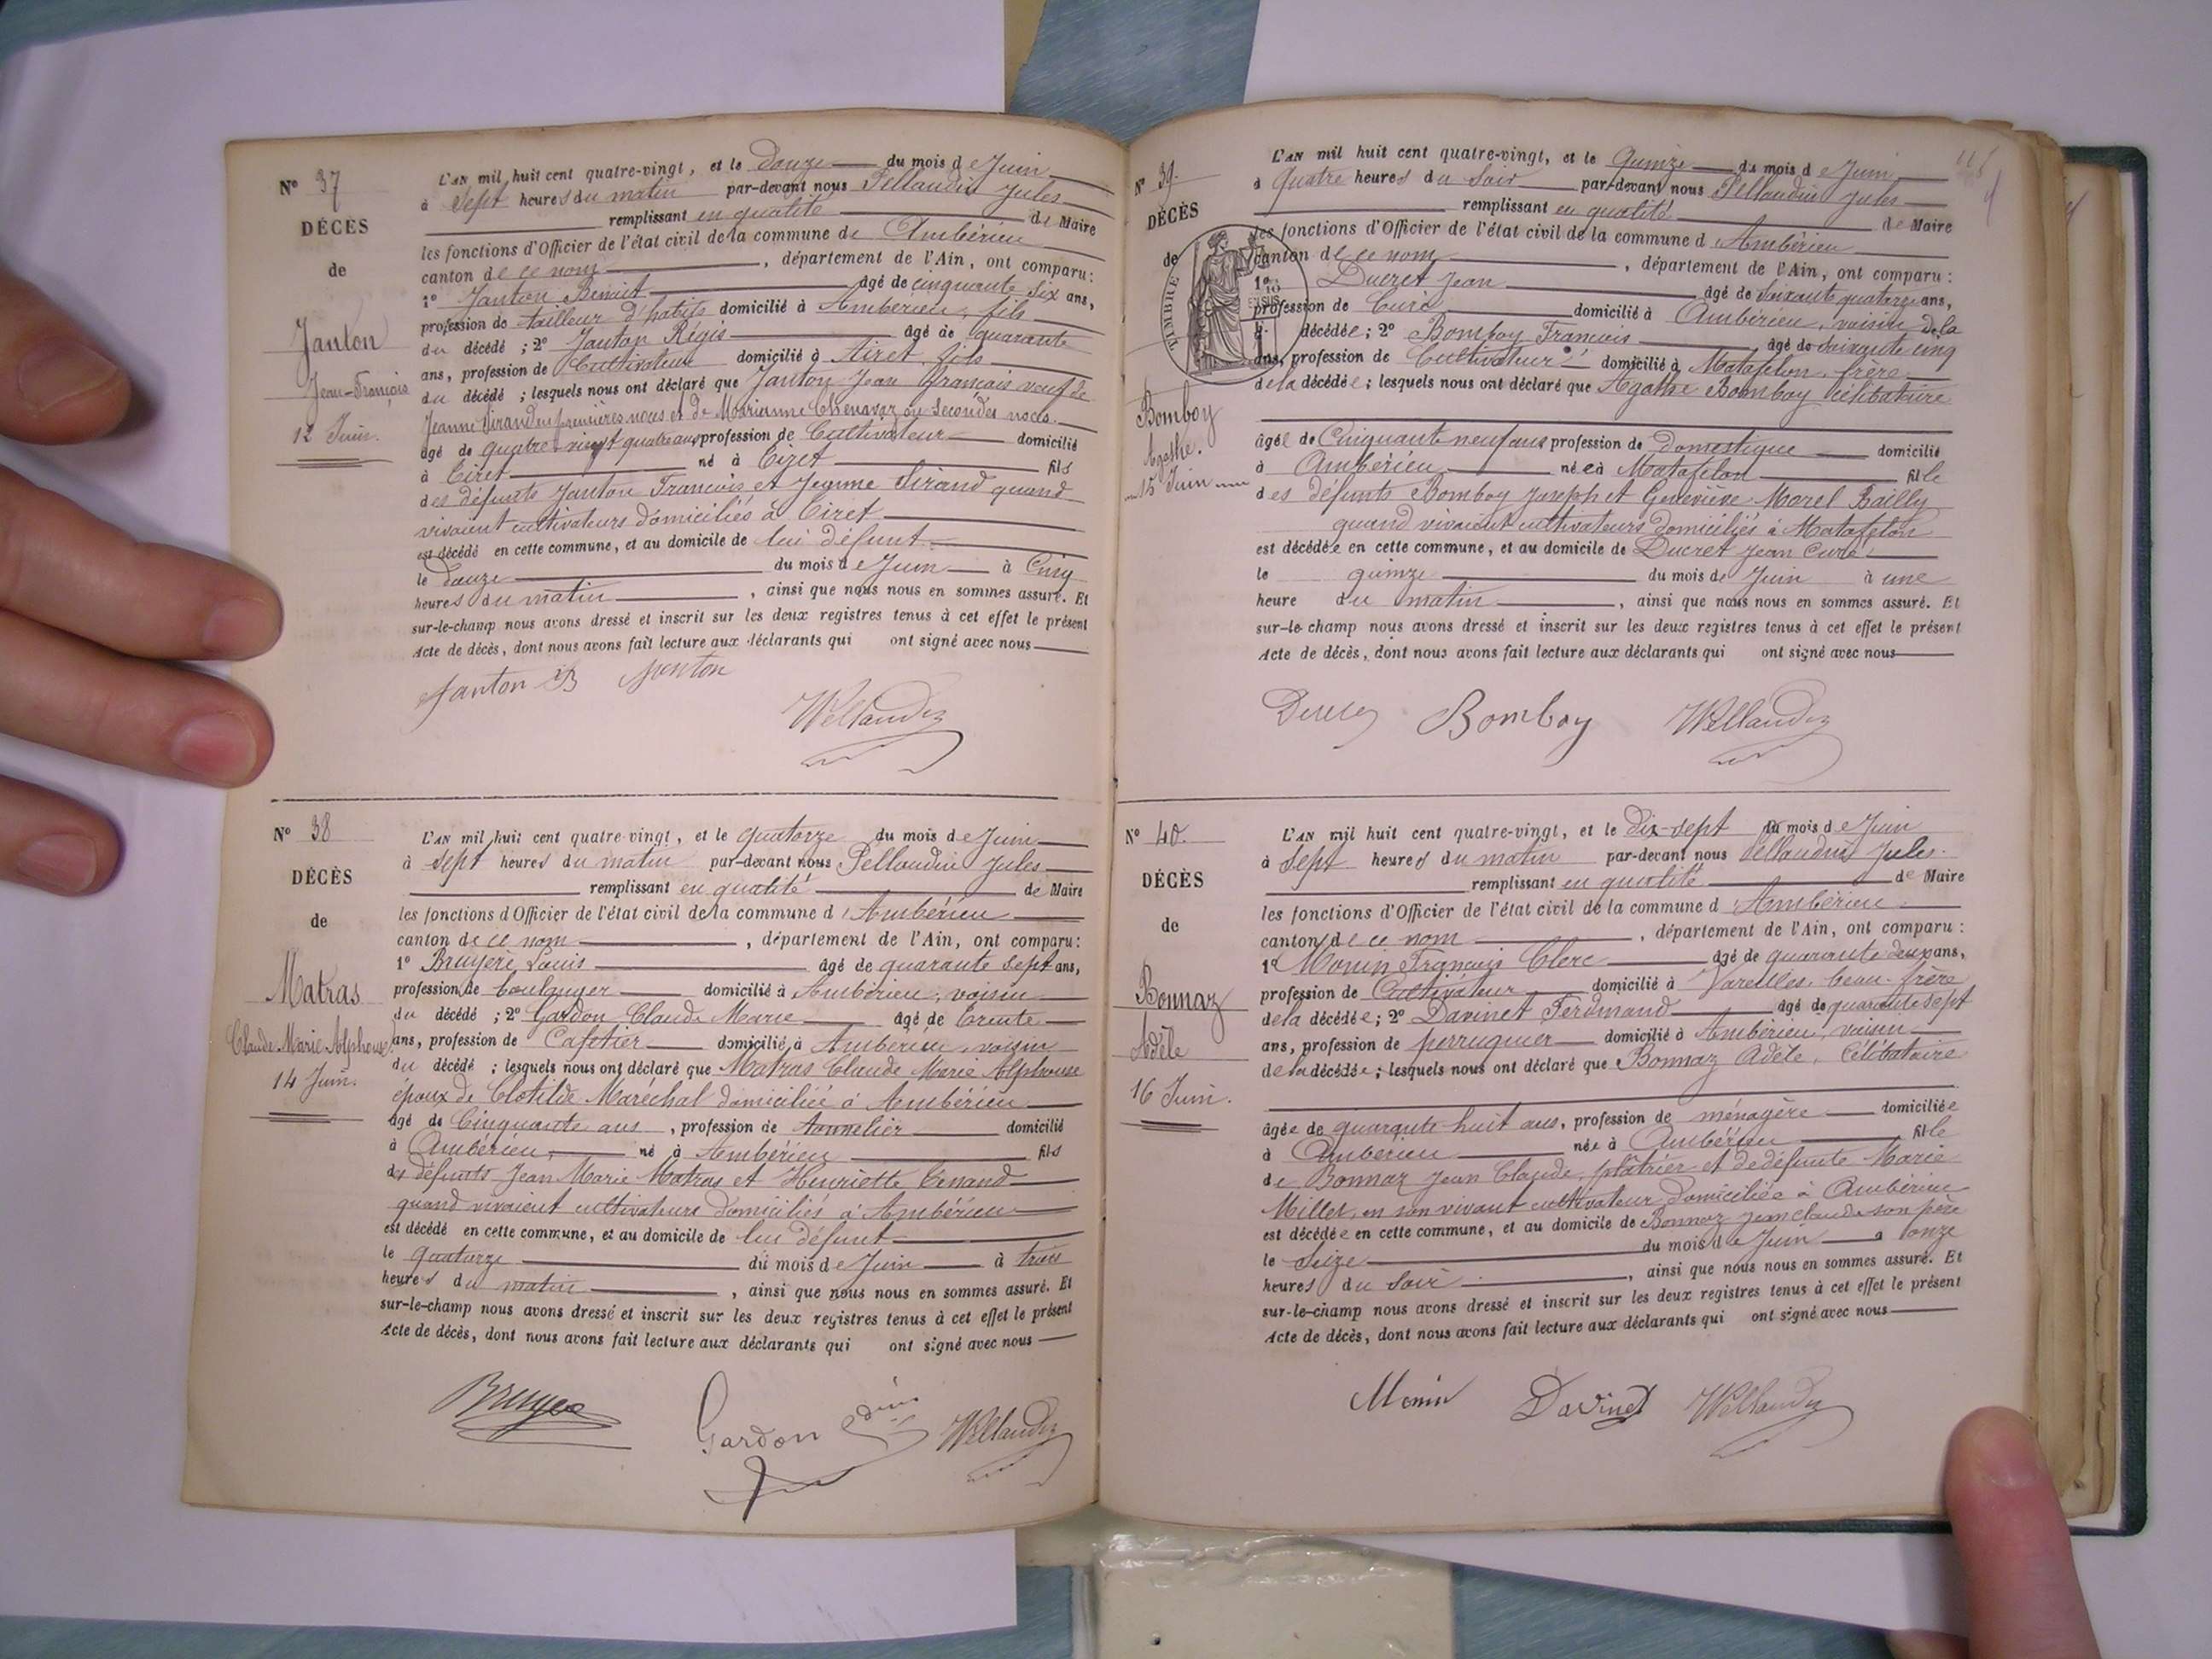 Nº 37
DÉCÈS
de
Janton
Jean-François
12 Juin.
L'AN mil huit cent quatre-vingt, et le douze du mois de Juin
à Sept heures du matin par-devant nous Pellaudin Jules
remplissant en qualité de Maire
les fonctions d'Officier de l'état civil de la commune de Ambérieu
canton de ce nom, département de l'Ain, ont comparu:
1º Janton Benoit âgé de cinquante six ans,
profession de tailleur d'habits domicilié à Ambérieu, fils
du décédé ; 2º Janton Régis âgé de quarante
ans, profession de Cultivateur domicilié à Tiret, fils
du décédé ; lesquels nous ont déclaré que Janton Jean François veuf de
Jeanne Sirand en premières noces et de Marianne Chenavaz en secondes noces
âgé de quatre-vingt quatre ans profession de Cultivateur domicilié
à Tiret né à Tiret fils
des défunts Janton François et Jeanne Sirand quand
vivaient cultivateurs domiciliés à Tiret
est décédé en cette commune, et au domicile de lui défunt
le douze du mois de Juin à Cinq
heures du matin, ainsi que nous nous en sommes assuré. Et
sur-le-champ nous avons dressé et inscrit sur les deux registres tenus à cet effet le présent
Acte de décès, dont nous avons fait lecture aux déclarants qui ont signé avec nous
Janton B Janton
Nº 38
DÉCÈS
de
Matras
Claude Marie Alphonse
14 Juin.
L'AN mil huit cent quatre-vingt, et le quatorze du mois de Juin
à sept heures du matin par-devant nous Pellaudin Jules
remplissant en qualité de Maire
les fonctions d'Officier de l'état civil de la commune d'Ambérieu
canton de ce nom, département de l'Ain, ont comparu:
1º Bruyère Louis âgé de quarante sept ans,
profession de boulanger domicilié à Ambérieu, voisin
du décédé ; 2º Gardon Claude Marie âgé de trente
ans, profession de Cafetier domicilié à Ambérieu, voisin
du décédé ; lesquels nous ont déclaré que Matras Claude Marie Alphonse
époux de Clotilde Maréchal domiciliée à Ambérieu
âgé de Cinquante ans, profession de tonnelier domicilié
à Ambérieu né à Ambérieu fils
des défunts Jean Marie Matras et Henriette
quand vivaient cultivateurs domiciliés à Ambérieu
est décédé en cette commune, et au domicile de lui défunt
le quatorze du mois de Juin à trois
heures du matin, ainsi que nous nous en sommes assuré. Et
sur-le-champ nous avons dressé et inscrit sur les deux registres tenus à cet effet le présent
Acte de décès, dont nous avons fait lecture aux déclarants qui ont signé avec nous
Gardon
Nº 39.
DÉCÈS
de
TIMBRE
Bomboy
Agathe.
15 Juin
L'AN mil huit cent quatre-vingt, et le Quinze du mois de Juin
à Quatre heures du Soir par-devant nous Pellaudin Jules
remplissant en qualité de Maire
les fonctions d'Officier de l'état civil de la commune d'Ambérieu
canton de ce nom, département de l'Ain, ont comparu:
1º Ducret Jean âgé de soixante quatorze ans,
profession de Curé domicilié à Ambérieu, voisin de la
décédée; 2º Bomboy François âgé de soixante cinq
ans, profession de Cultivateur domicilié à Matafelon, frère
de la décédée; lesquels nous ont déclaré que Agathe Bomboy célibataire
âgée de Cinquante neuf ans profession de domestique domicilié
à Ambérieu née à Matafelon fille
des défunts Bomboy Joseph et Geneviève Morel Bailly
quand vivaient cultivateurs domiciliés à Matafelon
est décédée en cette commune, et au domicile de Ducret Jean Curé
le quinze du mois de Juin à une
heure du matin, ainsi que nous nous en sommes assuré. Et
sur-le-champ nous avons dressé et inscrit sur les deux registres tenus à cet effet le présent
Acte de décès, dont nous avons fait lecture aux déclarants qui ont signé avec nous
Bomboy
Nº 40.
DÉCÈS
de
Bonnaz
Adèle
16 Juin.
L'AN mil huit cent quatre-vingt, et le Dix-sept du mois de Juin
à Sept heures du matin par-devant nous Pellaudin Jules
remplissant en qualité de Maire
les fonctions d'Officier de l'état civil de la commune d'Ambérieu
canton de ce nom, département de l'Ain, ont comparu:
1º Monin François Clerc âgé de quarante deux ans,
profession de Cultivateur domicilié à Vareilles, beau-frère
de la décédée; 2º Davinet Ferdinand âgé de quarante sept
ans, profession de perruquier domicilié à Ambérieu, voisin
de la décédée; lesquels nous ont déclaré que Bonnaz Adèle, Célibataire
âgée de quarante huit ans, profession de ménagère domiciliée
à Ambérieu née à Ambérieu fille
de Bonnaz Jean Claude, plâtrier et de défunte Marie
Millet, en son vivant cultivateur domiciliée à Ambérieu
est décédée en cette commune, et au domicile de Bonnaz Jean Claude son père
le Seize du mois de Juin à onze
heures du Soir, ainsi que nous nous en sommes assuré. Et
sur-le-champ nous avons dressé et inscrit sur les deux registres tenus à cet effet le présent
Acte de décès, dont nous avons fait lecture aux déclarants qui ont signé avec nous
Monin Davinet